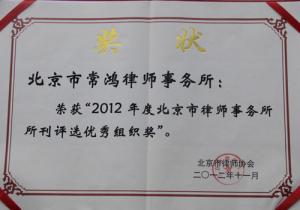 奖状
北京市常鸿律师事务所：
荣获“2012年度北京市律师事务所
所刊评选优秀组织奖”。
北京市律师协会
二〇一二年十一月